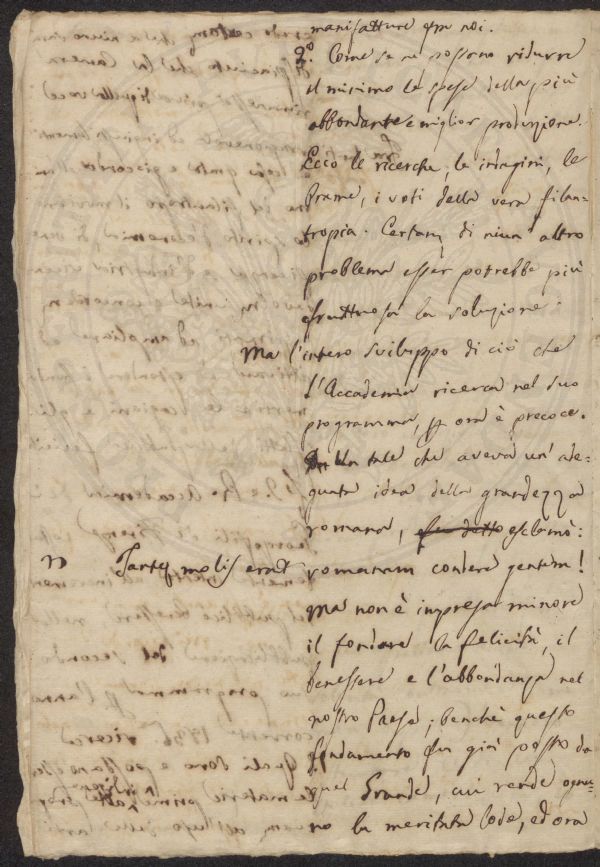 manifatture per noi.
2º. Come se ne possono ridurre
il minimo le spese della più
abbondante e miglior produzione.
Ecco le ricerche, le indagini, le
brame, i voti della vera filan-
tropia. Certam. di niun' altro
problema esser potrebbe più
fruttuosa la soluzione.
Ma l'intero sviluppo di ciò che
l'Accademia ricerca nel suo
programma, p ora è precoce.
Un tale che aveva un' ade-
quata idea della grandezza
romana, esclamò:
n Tantę molis erat romanam condere gentem!
Ma non è impresa minore
il fondare la felicità, il
benessere e l'abbondanza nel
nostro Paese; benchè questo
fondamento fu già posto da
quel Grande, cui rende ognu-
no la meritata lode, ed ora